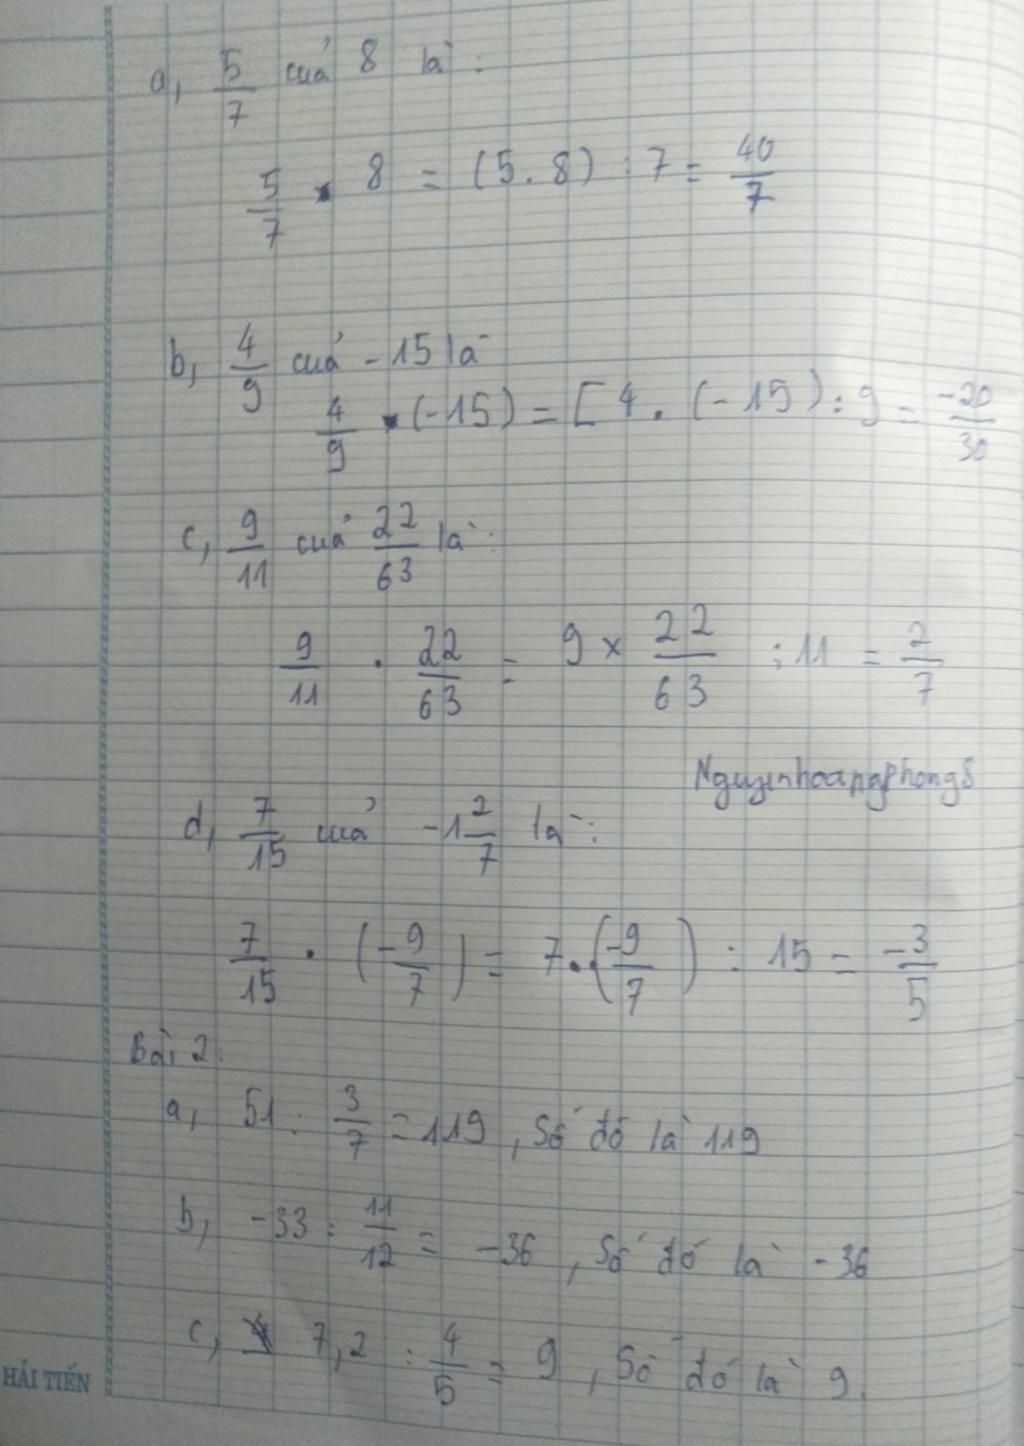 a, 5/7 của 8 là :
5/7 . 8 = (5.8) : 7 = 40/7
b, 4/9 của -15 là
4/9 . (-15) = [4. (-15) : 9 = -20/30
c, 9/11 của 22/63 là :
9/11 . 22/63 = 9 x 22/63 : 11 = 2/7
Nguyenhoangphong8
d, 7/15 của -1 2/7 là :
7/15 . (-9/7) = 7.(-9/7) : 15 = -3/5
Bài 2.
a, 51 : 3/7 = 119 , Số đó là 119
b, -33 : 11/12 = -36 , Số đó là -36
c, 7,2 : 4/5 = 9 , Số đó là 9.
HẢI TIẾN